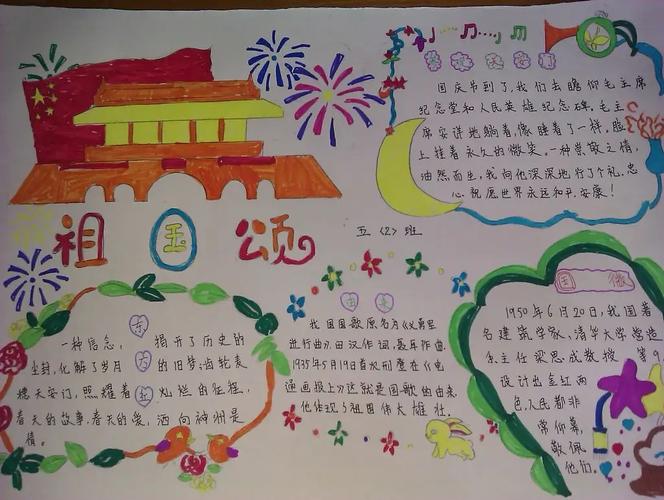 祖国颂
五〈2〉班
国庆节到了,我们去瞻仰毛主席
纪念堂和人民英雄纪念碑。毛主
席安详地躺着,像睡着了一样,脸
上挂着永久的微笑。一种崇敬之情,
油然而生,我向他深深地行了个礼,忠
心祝愿世界永远和平、安康!
一种信念,
揭开了历史的
尘封,化解了岁月
的旧梦;齿轮表
穗天安门,照耀着
灿烂的征程,
春天的故事,春天的爱,洒向神州是
情。
我国国歌原名为《义勇军
进行曲》,田汉作词,聂耳作曲,
1935年5月19日首次刊登在《电
通画报上》,这就是国歌的由来,
他体现了祖国伟大雄壮。
国徽
1950年6月20日,我国著
名建筑学家、清华大学营造
系主任梁思成教授
设计出金红两
色,人民都非
常仰幕,
敬佩
他们。